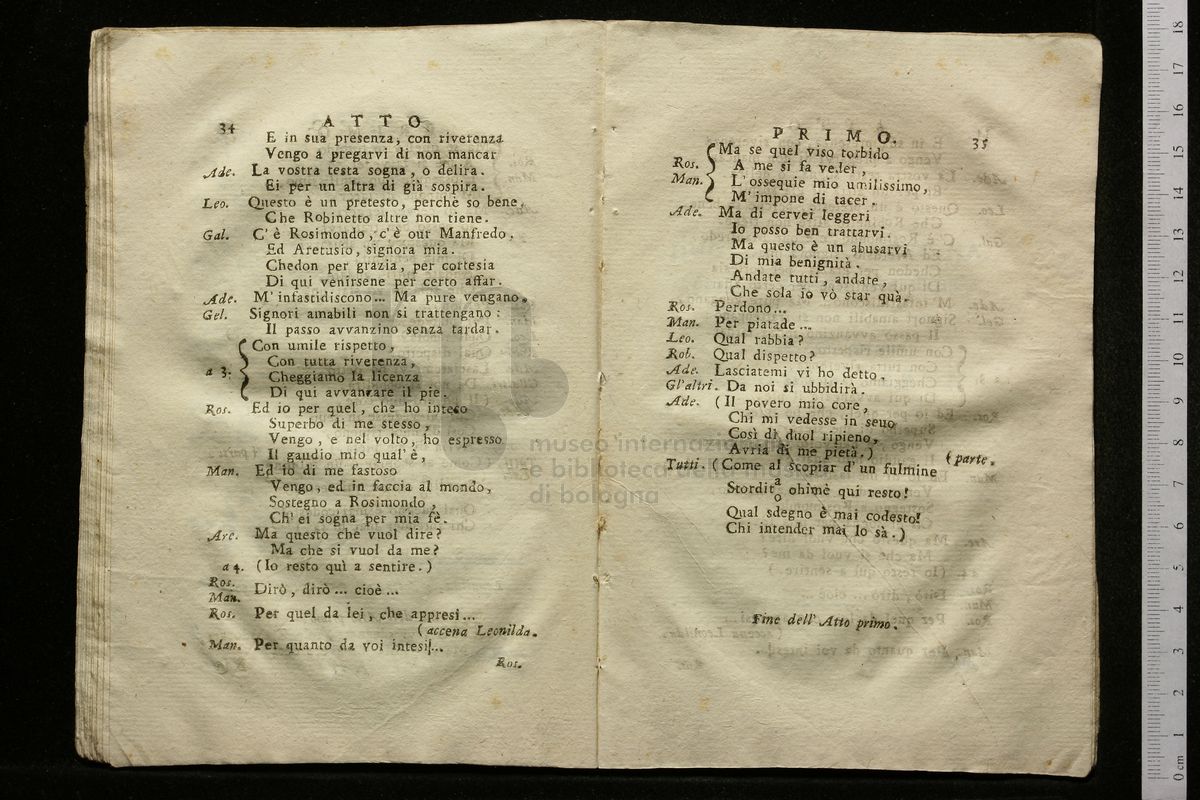 34 ATTO
E in sua presenza, con riverenza
Vengo a pregarvi di non mancar
Ade. La vostra testa sogna, o delira.
Ei per un altra di già sospira.
Leo. Questo è un pretesto, perchè so bene,
Che Robinetto altre non tiene.
Gal. C'è Rosimondo, c'è our Manfredo.
Ed Aretusio, signora mia.
Chedon per grazia, per cortesia
Di qui venirsene per certo affar.
Ade. M'infastidiscono... Ma pure vengano.
Gel. Signori amabili non si trattengano:
Il passo avvanzino senza tardar.
a 3. Con umile rispetto,
Con tutta riverenza,
Cheggiamo la licenza
Di qui avvanzare il pie.
Ros. Ed io per quel, che ho inteso
Superbo di me stesso,
Vengo, e nel volto, ho espresso
Il gaudio mio qual'è,
Man. Ed io di me fastoso
Vengo, ed in faccia al mondo,
Sostegno a Rosimondo,
Ch'ei sogna per mia fè.
Are. Ma questo che vuol dire?
Ma che si vuol da me?
a 4. (Io resto quì a sentire.)
Ros.
Man. Dirò, dirò... cioè...
Ros. Per quel da lei, che appresi...
(accena Leonilda.
Man. Per quanto da voi intesi...
Ros.
PRIMO. 35
Ros.
Man. Ma se quel viso torbido
A me si fa veder,
L'ossequie mio umilissimo,
M'impone di tacer.
Ade. Ma di cervei leggeri
Io posso ben trattarvi.
Ma questo è un abusarvi
Di mia benignità.
Andate tutti, andate,
Che sola io vò star quà.
Ros. Perdono...
Man. Per piatade...
Leo. Qual rabbia?
Rob. Qual dispetto?
Ade. Lasciatemi vi ho detto.
Gl'altri. Da noi si ubbidirà.
Ade. (Il povero mio core,
Chi mi vedesse in seuo
Così di duol ripieno,
Avria di me pietà.)
(parte.
Tutti. (Come al scopiar d'un fulmine
Stordit a/o ohimè qui resto!
Qual sdegno è mai codesto!
Chi intender mai lo sà.)
Fine dell'Atto primo.
museo internazionale
e biblioteca della musica
di bologna
0 cm 1 2 3 4 5 6 7 8 9 10 11 12 13 14 15 16 17 18